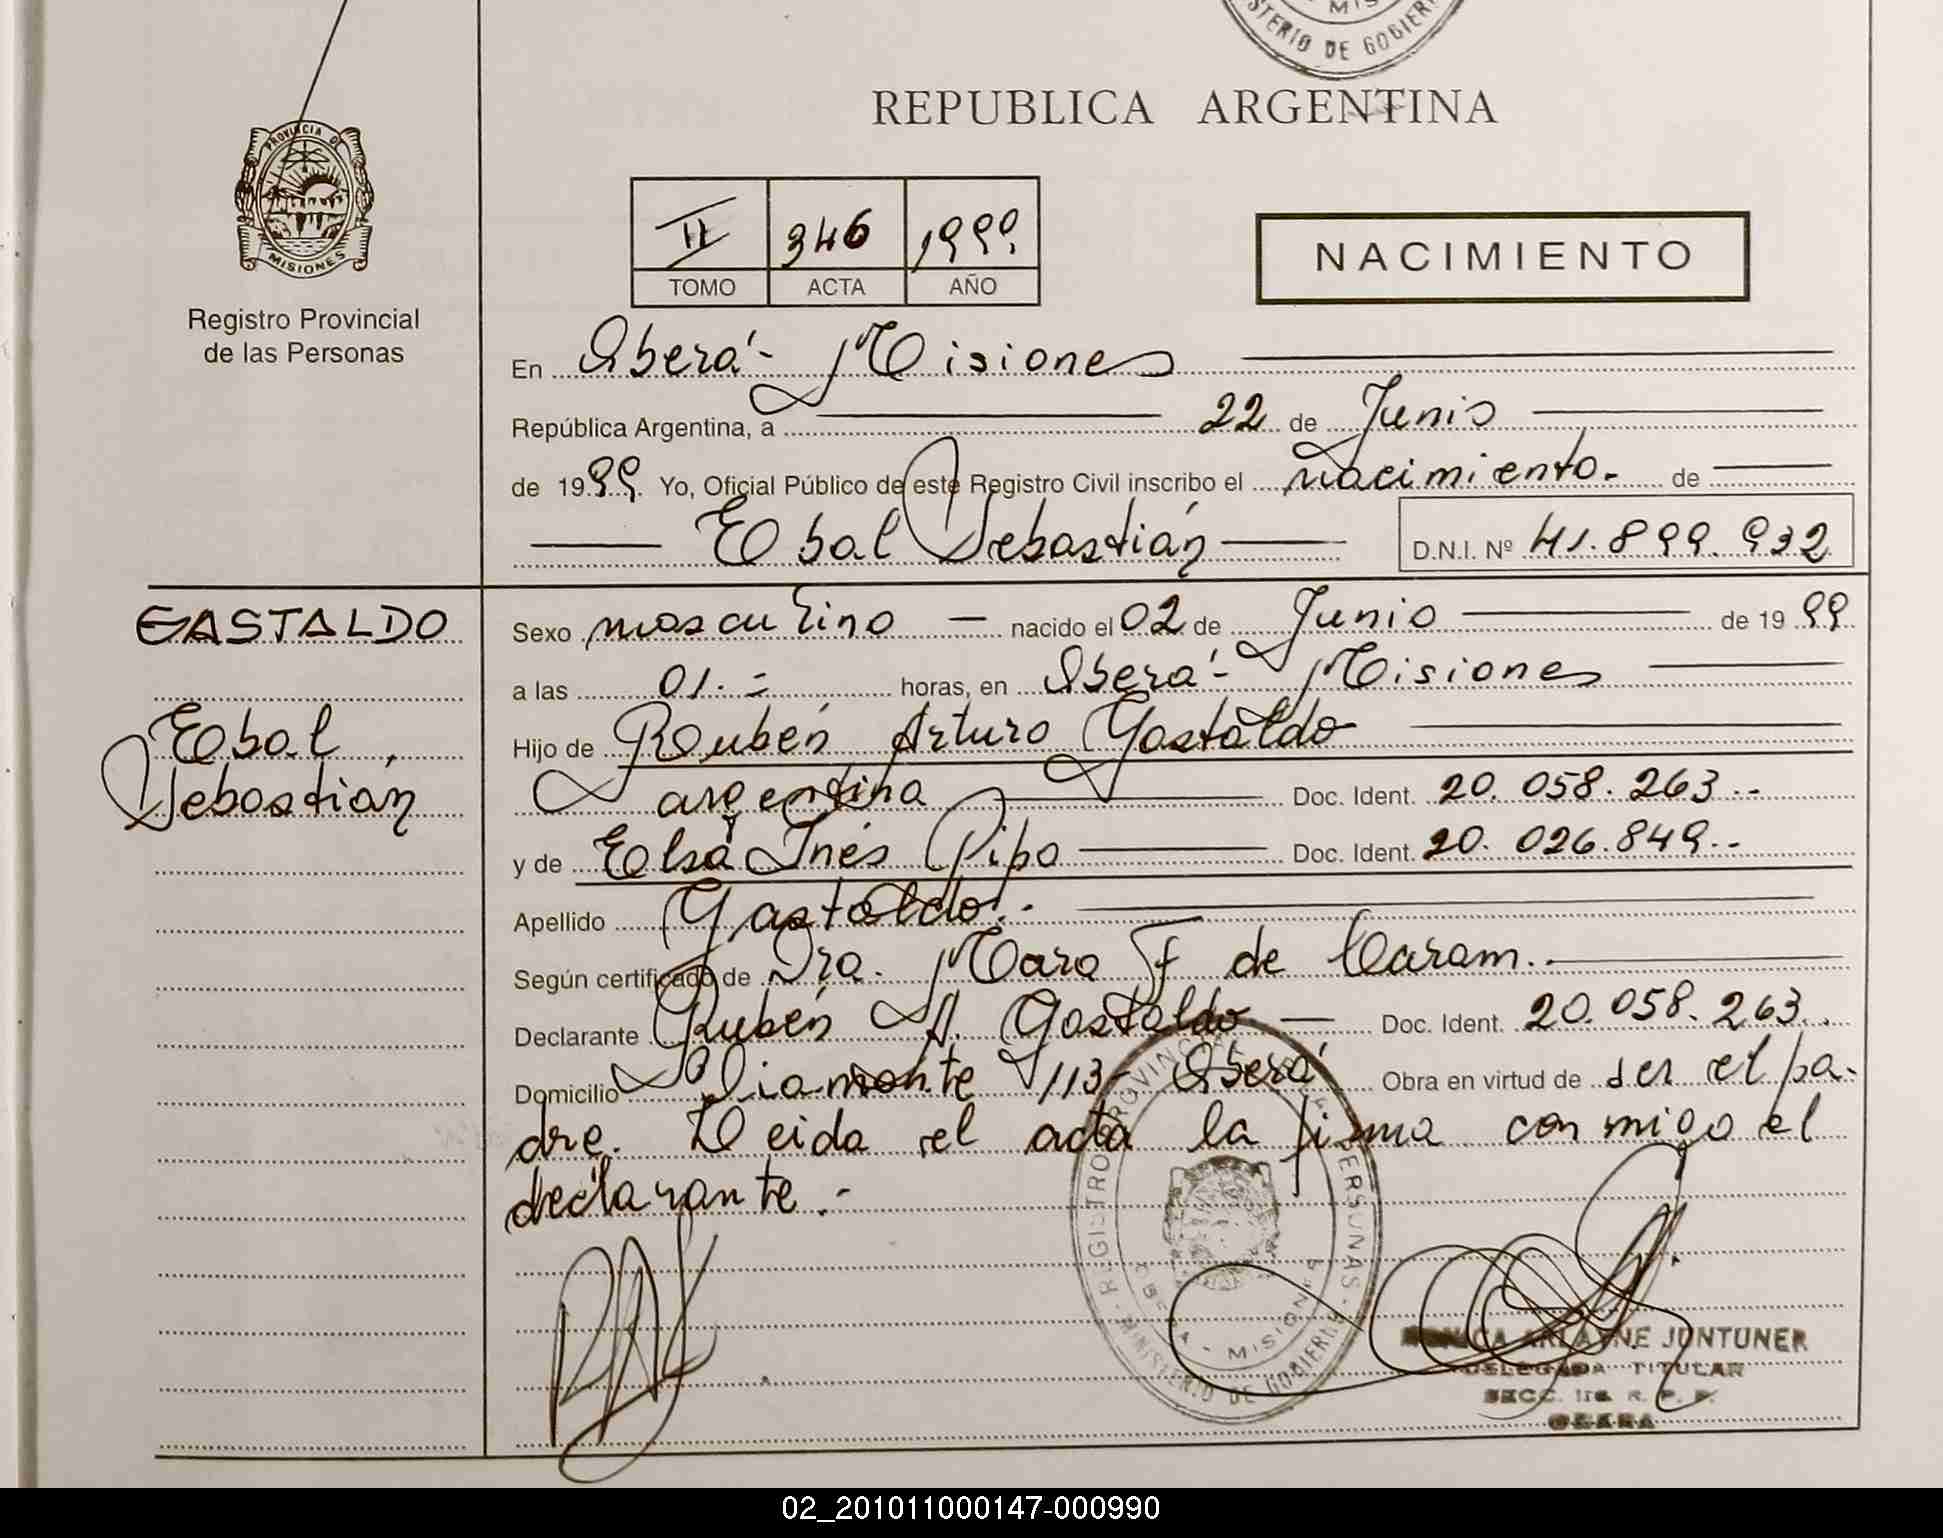 MIS
STERIO DE GOBIER
REPUBLICA ARGENTINA
PROVINCIA DE
MISIONES
Registro Provincial
de las Personas
II 346 1999
TOMO ACTA AÑO
NACIMIENTO
En Oberá - Misiones
República Argentina, a 22 de Junio
de 1999. Yo, Oficial Público de este Registro Civil inscribo el nacimiento. de
Ebal Sebastián D.N.I. Nº 41.899.932
GASTALDO
Ebal
Sebastián
Sexo masculino nacido el 02 de Junio de 1999
a las 01.= horas, en Oberá - Misiones
Hijo de Rubén Arturo Gastaldo
argentina Doc. Ident. 20.058.263.-
y de Elsa Inés Pipo Doc. Ident. 20.026.849.-
Apellido Gastaldo.-
Según certificado de Dra. Mara F de Caram.-
Declarante Rubén A. Gastaldo Doc. Ident. 20.058.263.
Domicilio Diamante 113 - Oberá Obra en virtud de ser el pa-
dre. Leida el acta la firma conmigo el
declarante.-
REGISTRO PROVINCIAL DE LAS PERSONAS
OBERA - MISIONES
MINISTERIO DE GOBIERNO
JUNTUNER
DELEGADA TITULAR
SECC. 1ra R. P. P.
OBERA
02_201011000147-000990